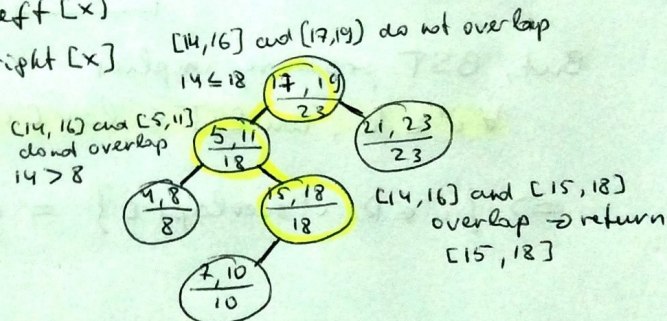 eft [x]
ight [x]
[14,16] and [17,19] do not overlap
14 ≤ 18
17, 19
23
[14, 16] and [5,11]
do not overlap
14 > 8
5, 11
18
21, 23
23
4, 8
8
15, 18
18
[14,16] and [15,18]
overlap → return
[15, 18]
7, 10
10